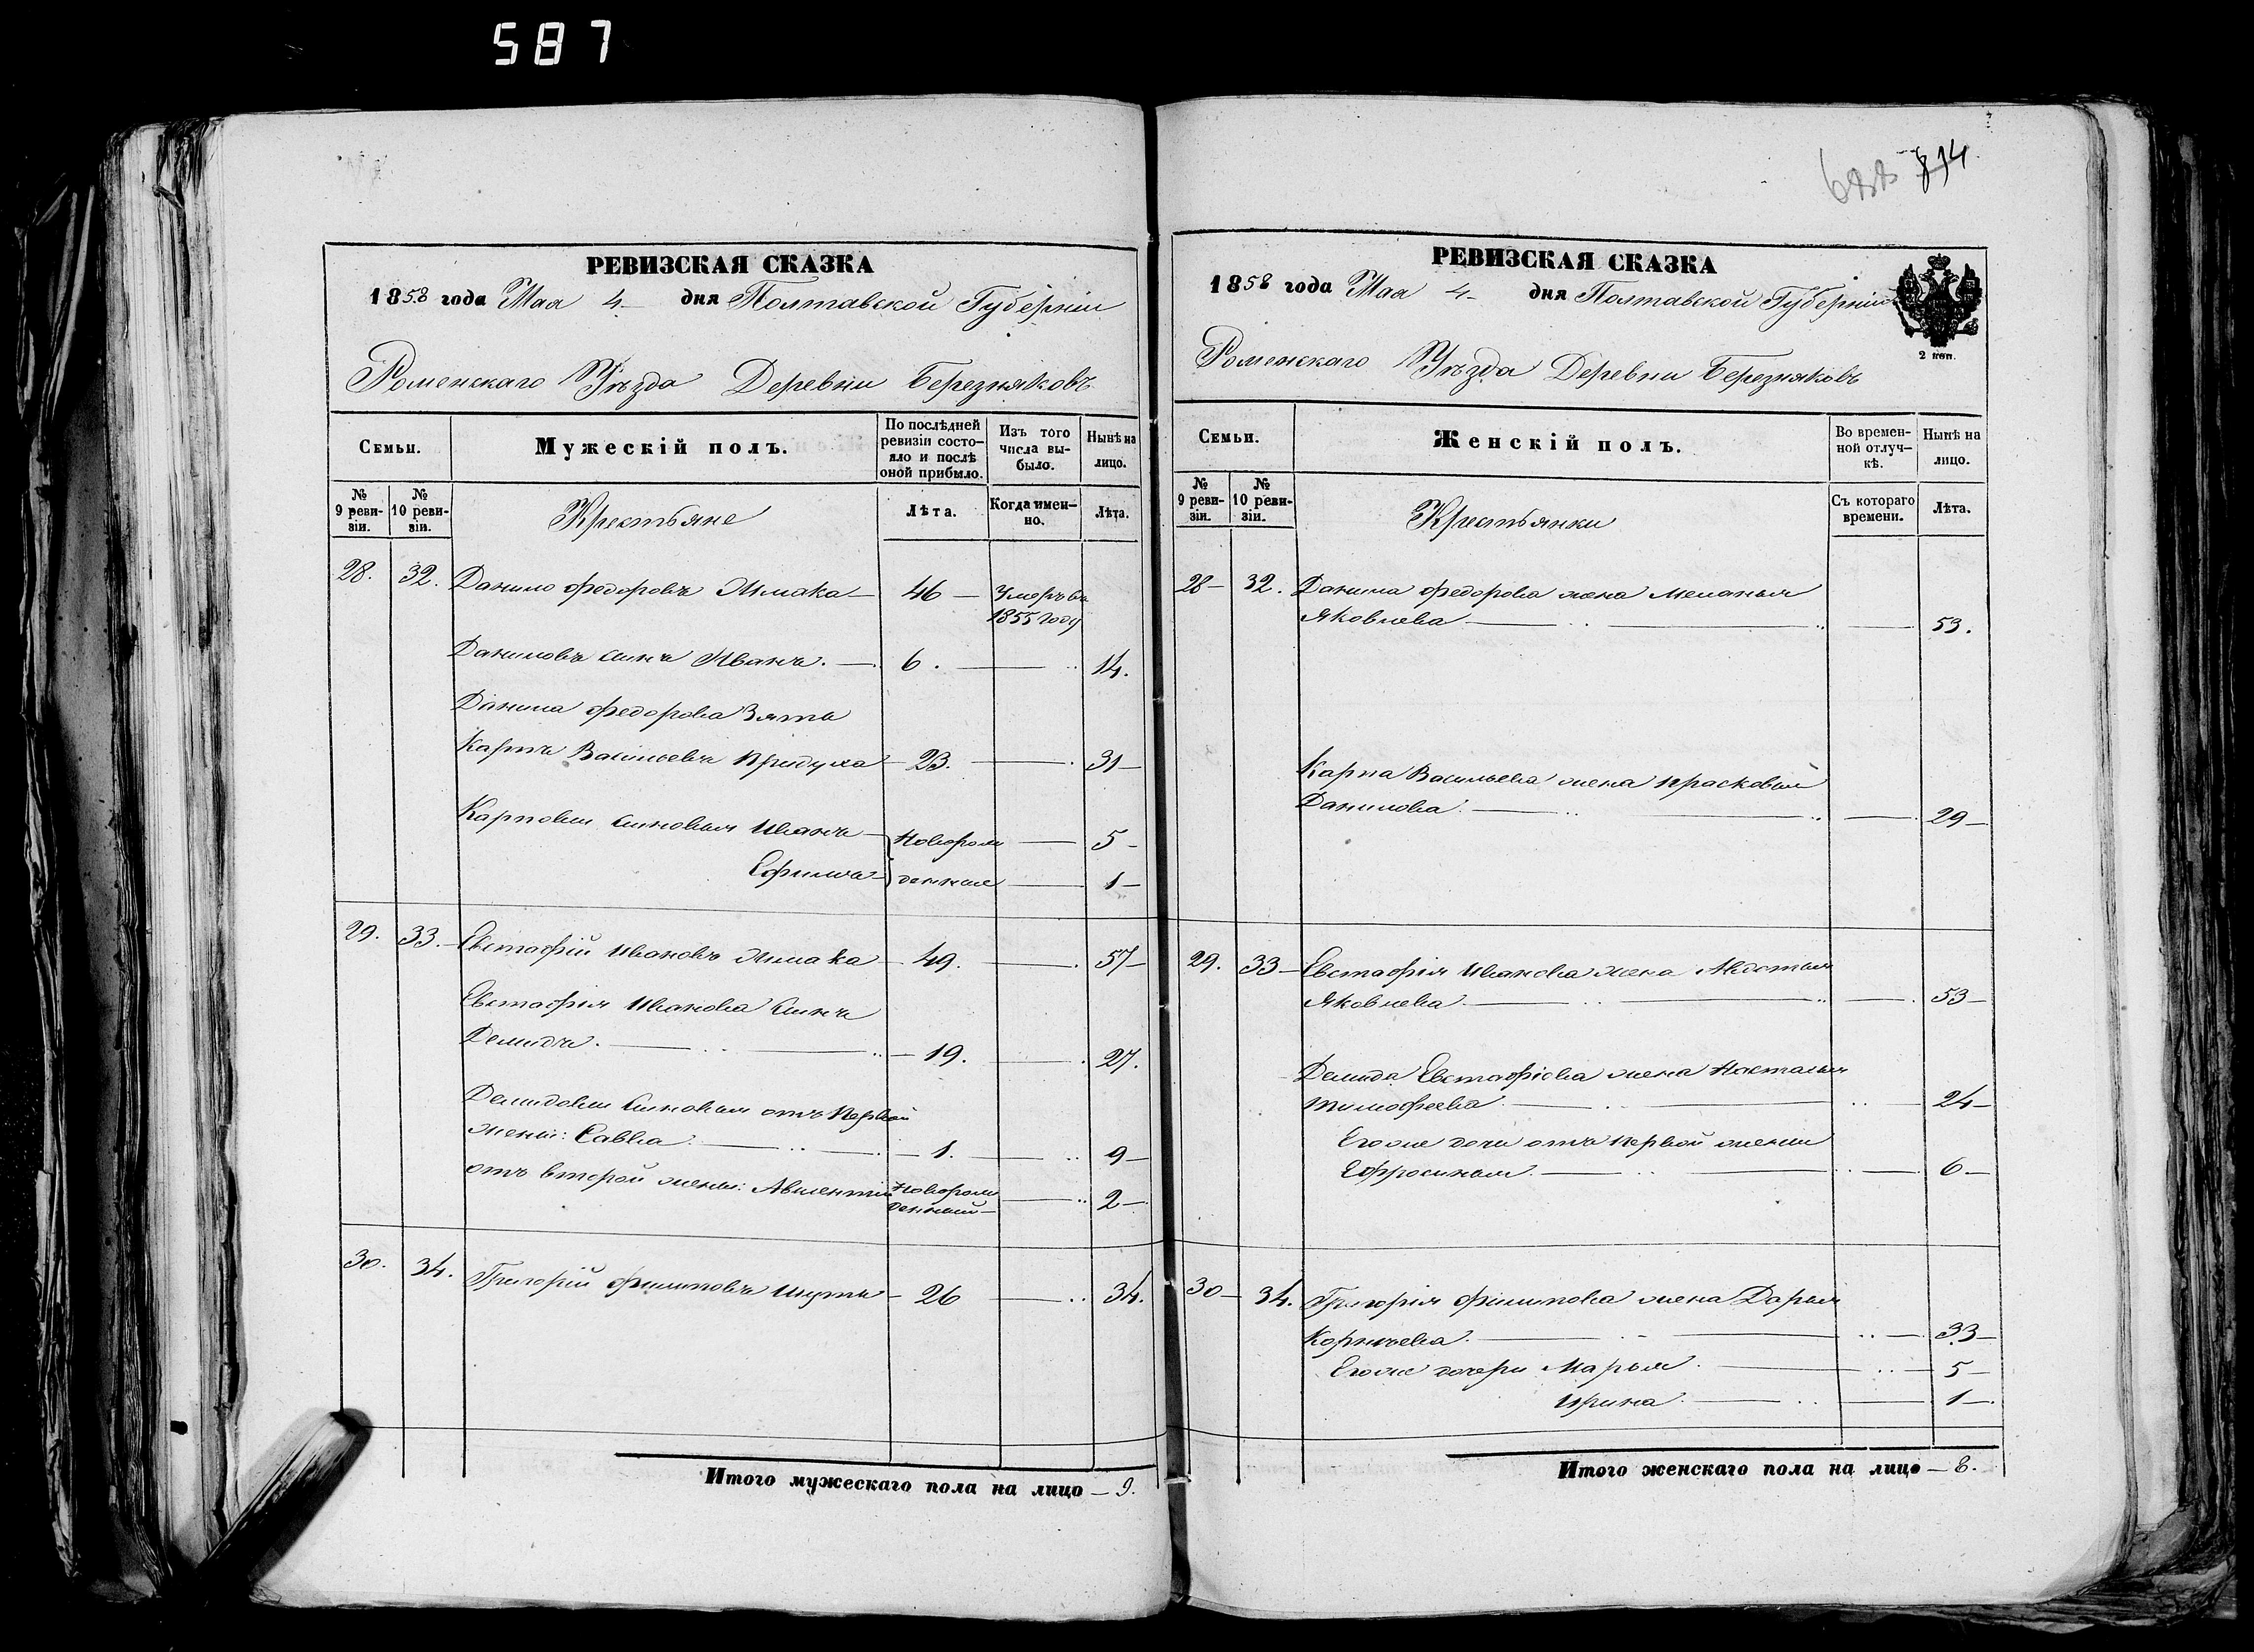 587
814
РЕВИЗСКАЯ СКАЗКА
1858 года Мая 4 дня Полтавской Губерніи
Роменскаго Уѣзда Деревни Березняковъ
Семьи.
Мужескій полъ.
По послѣдней ревизіи состо-
яло и послѣ
оной прибыло.
Изъ того
числа вы-
было.
Нынѣ на
лицо.
№
9 реви-
зіи.
№
10 реви-
зіи.
Крестьяне
Лѣта.
Когда имен-
но.
Лѣта.
28. 32. Данило Федоровъ 46 Умеръ въ
1855 году
Даниловъ сынъ Иванъ. 6. 14.
Данила Федорова Зять
Карпъ Васильевъ Придуха 23. 31
Карповы сыновья Иванъ Новорож 5
Ефимъ денные 1
29. 33. Евстафій Ивановъ 49. 57
Евстафія Иванова Сынъ
Демидъ. 19. 27.
Демидовы Сыновья отъ Первой
жены: Савва 1. 9
отъ второй жены: Авксентій Новорож
денный 2
30. 34. Григорій Филиповъ Шутъ 26 34.
Итого мужескаго пола на лицо 9.
РЕВИЗСКАЯ СКАЗКА
1858 года Мая 4 дня Полтавской Губерніи
2 коп.
Роменскаго Уѣзда Деревни Березняковъ
Семьи.
Женскій полъ.
Во времен-
ной отлуч-
кѣ.
Нынѣ на
лицо.
№
9 реви-
зіи.
№
10 реви-
зіи.
Крестьянки
Съ котораго
времени.
Лѣта.
28 32. Данила Федорова жена Меланья
Яковлева 53.
Карпа Васильева жена Прасковья
Данилова 29
29. 33 Евстафія Иванова жена Авдотья
Яковлева 53
Демида Евстафіева жена Наталья
Тимофеева 24
Его же дочь отъ первой жены
Ефросинья 6
30 34. Григорія Филипова жена Дарья
Корнѣева 33
Его же дочери Марья 5
Ирина 1
Итого женскаго пола на лицо 8.